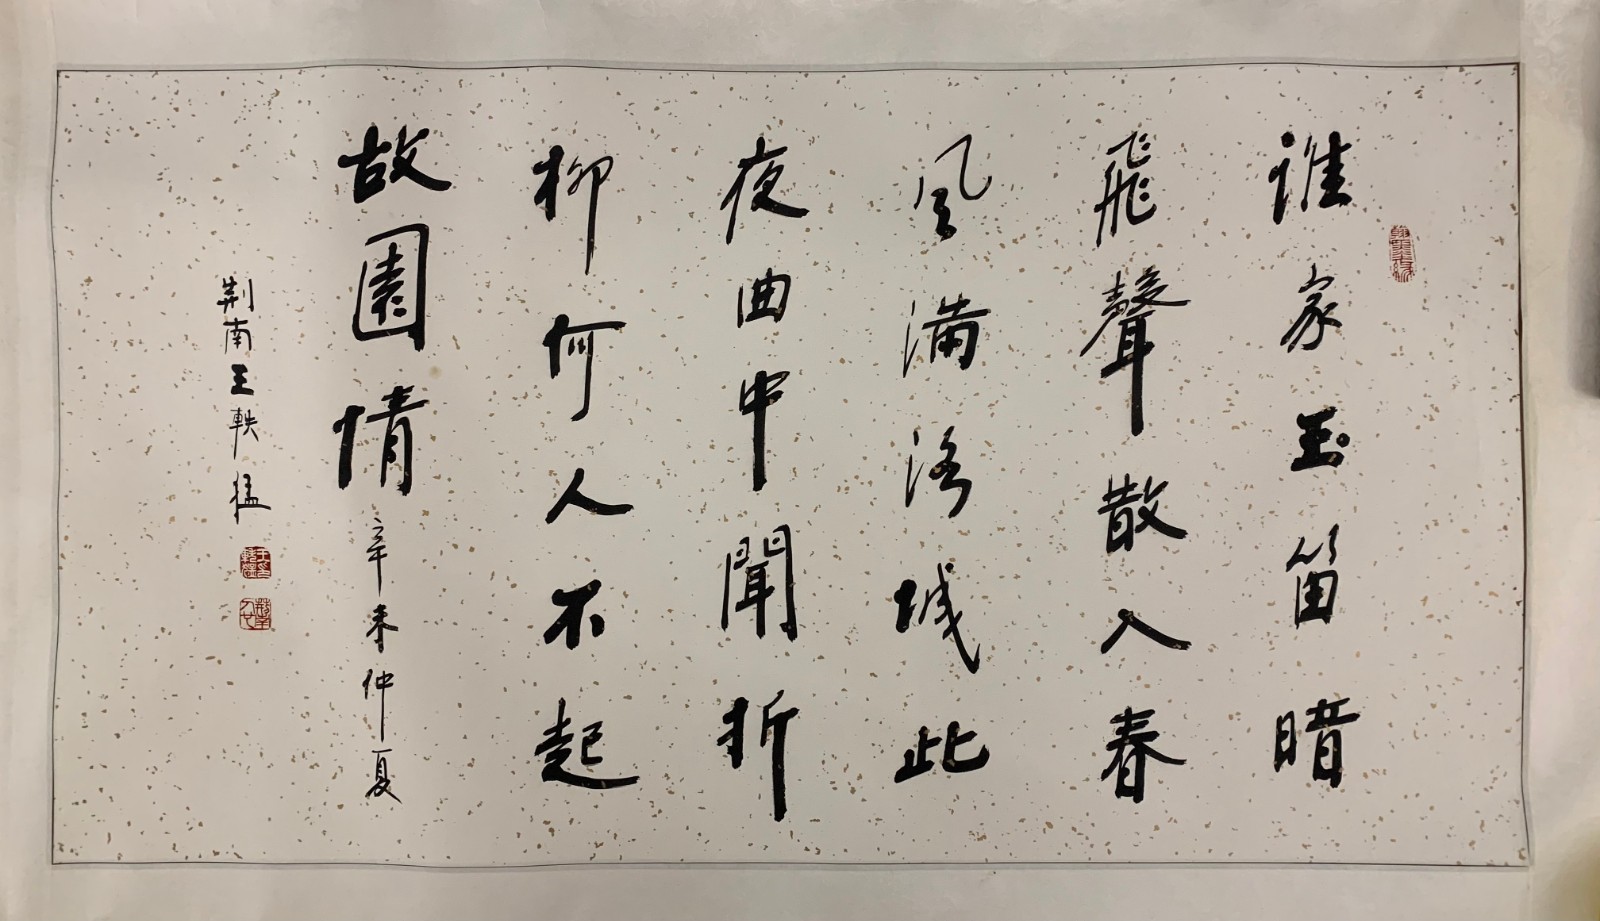 誰家玉笛暗
飛聲散入春
風滿洛城此
夜曲中聞折
柳何人不起
故園情
辛未仲夏
荆南王軼猛